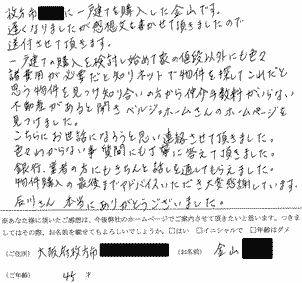 枚方市 に一戸建てを購入した金山です。
遅くなりましたが感想文を書かせて頂きましたので
送付させて頂きます。
一戸建ての購入を検討し始めて家の値段以外にも色々
諸費用が必要だと知りネットで物件を探してこれだと
思う物件を見つけ知り合いの方から仲介手数料がいらない
不動産があると聞きベルジェホームさんのホームページを
見つけました。
こちらにお世話になろうと思い連絡させて頂きました。
色々わからない事質問にも丁寧に答えて頂きました。
銀行、業者の方にもきちんと話を通してもらえました。
物件購入の最後までアドバイスいただき大変感謝しています。
石川さん本当にありがとうございました。
※あなた様に頂いたご感想は、今後弊社のホームページでご案内させて頂きたいと思います。つきま
しては、その際、お名前を載せてもよろしいでしょうか。□はい □イニシャルで □年齢はダメ
(ご住所) 大阪府枚方市 (お名前) 金山
(ご年齢) 45 才